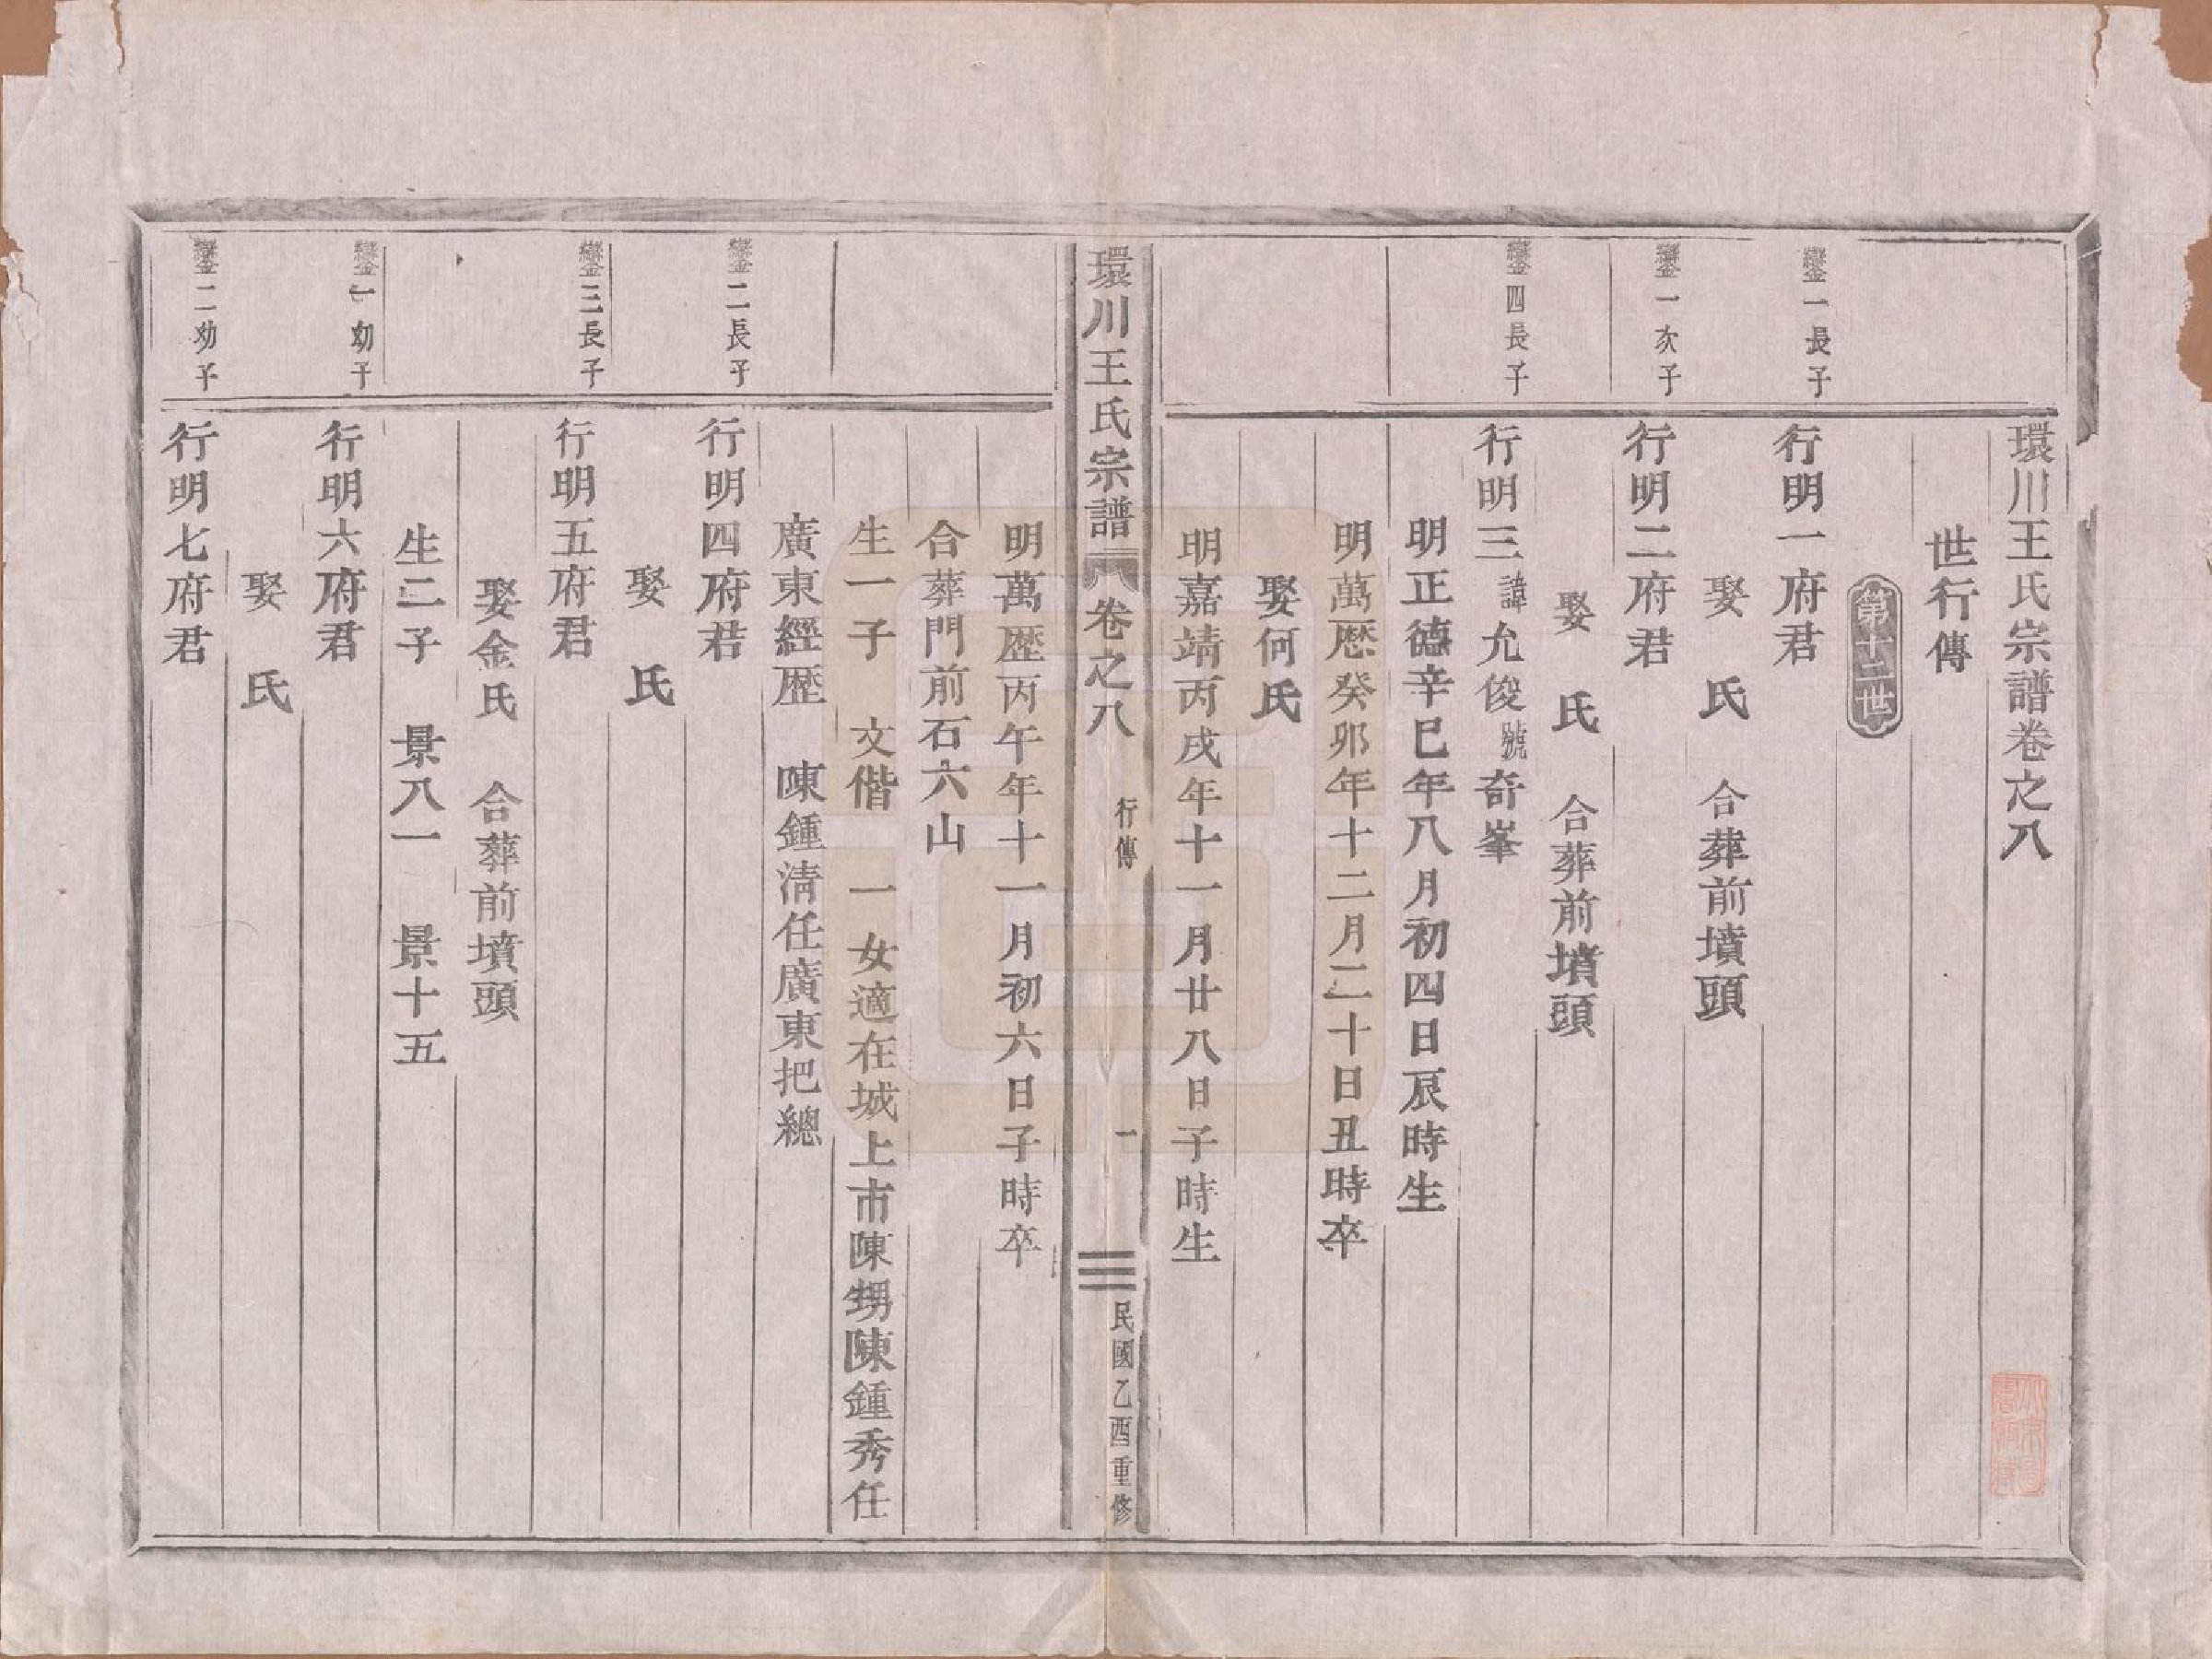 環川王氏宗譜卷之八
世行傳
第十二世
鑾一長子
行明一府君
娶 氏 合葬前墳頭
鑾一次子
行明二府君
娶 氏 合葬前墳頭
鑾四長子
行明三諱允俊號奇峯
明正德辛巳年八月初四日辰時生
明萬歷癸卯年十二月二十日丑時卒
娶何氏
明嘉靖丙戌年十一月廿八日子時生
環川王氏宗譜 卷之八 行傳 一 民國乙酉重修
明萬歷丙午年十一月初六日子時卒
合葬門前石六山
生一子 文偕 一女適在城上市陳甥陳鍾秀任
廣東經歷 陳鍾淸任廣東把總
鑾二長子
行明四府君
娶 氏
鑾三長子
行明五府君
娶金氏 合葬前墳頭
生二子 景八一 景十五
鑾一幼子
行明六府君
娶 氏
鑾二幼子
行明七府君